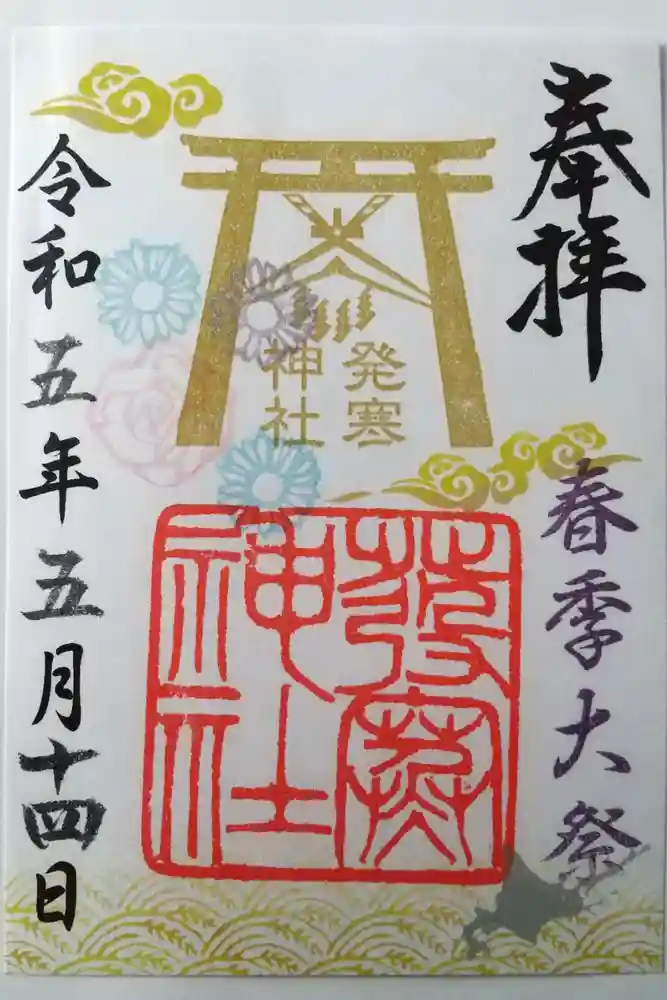 奉拝
春季大祭
発寒
神社
発寒
神社
令和五年五月十四日